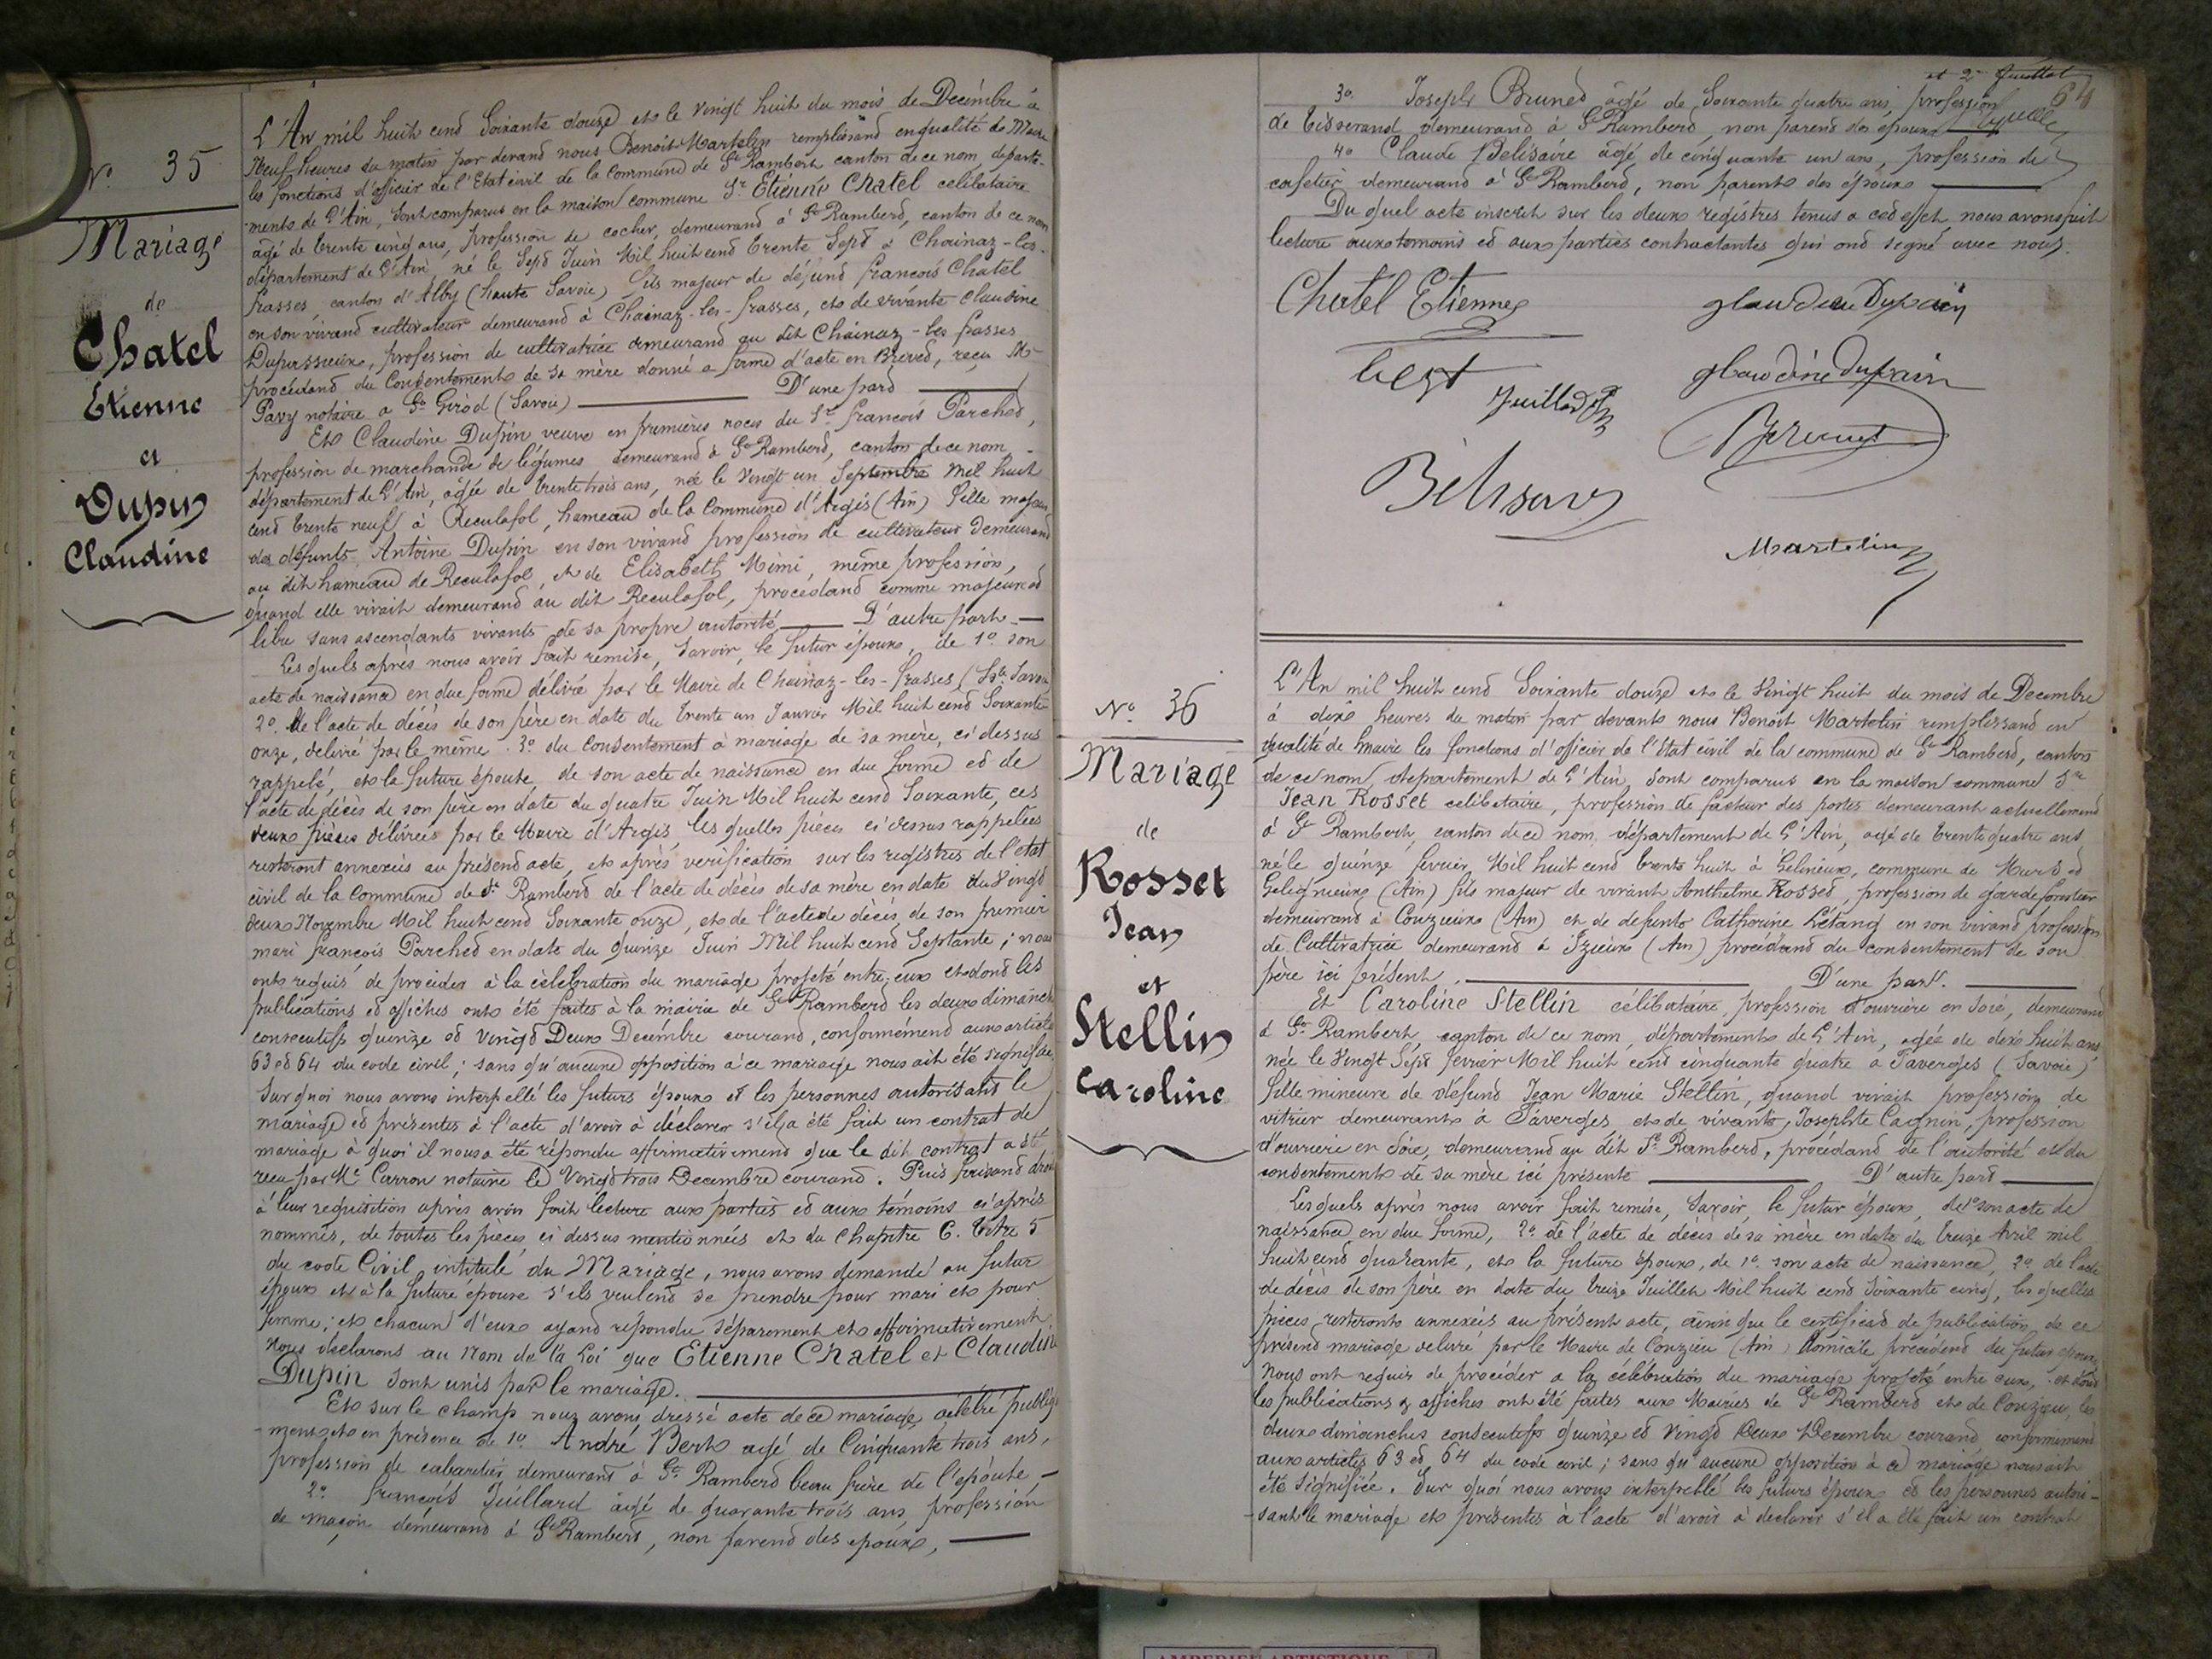 N.° 35
Mariage
de
Chatel
Etienne
et
Dupin
Claudine
L'An mil huit cend Soixante douze et le vingt huit du mois de Decémbre à
Neuf heures du matin par devand nous Benoit Martelin remplissand en qualité de Maire
les fonctions d'officier de l'Etat civil de la Commune de St Rambert canton de ce nom, départe-
ments de l'Ain, Sont comparus en la maison commune Sr Etienne Chatel celibataire
âgé de trente cinq ans, profession de cocher, demeurand à St Ramberd, canton de ce nom
département de l'Ain, né le Sepd Juin Mil huit cend trente Sepd à Chainaz-les-
frasses, canton d'Alby (haute Savoie) fils majeur de défund françois Chatel
en son vivand cultivateur demeurand à Chainaz-les-frasses, et de vivante Claudine
Duparssieux, profession de cultivatrice demeurand au dit Chainaz-les frasses
procédand du Consentement de sa mère donné a forme d'acte en Breved, reçu Me
Pavy notaire a St Girod (Savoie) D'une pard
Et Claudine Dupin veuve en premières noces du Sr françois Parched,
profession de marchande de légumes demeurand à St Ramberd, canton de ce nom
département de l'Ain, âgée de trente trois ans, née le vingt un Septembre mil huit
cend trente neuf à Reculafol, hameau de la Commune d'Argis (Ain) fille majeure
des défunts Antoine Dupin en son vivand profession de cultivateur demeurand
au dit hameau de Reculafol, et de Elisabeth Mimi, même profession,
quand elle vivait demeurand au dit Reculafol, procédand comme majeure et
libre sans ascendants vivants de sa propre autorité D'autre parte
Les quels après nous avoir fait remise, Savoir, le futur époux, de 1° son
acte de naissance en due forme délivré par le Maire de Chainaz-les-frasses (Hte Savoie
2° de l'acte de décès de son père en date du trente un Janvier Mil huit cend Soixante
onze, délivré par le même. 3° du Consentement à mariage de sa mère, ci dessus
rappelé, et la future épouse, de son acte de naissance en due forme ed de
l'acte de décès de son père en date du quatre Juin Mil huit cend Soixante, ces
deux pièces délivrées par le Maire d'Argis, les quelles pièces ci dessus rappelées
resteront annexées au présend acte, et après vérification sur les registres de l'etat
civil de la Commune de St Ramberd de l'acte de décès de sa mère en date du vingd
deux Novembre Mil huit cend Soixante onze, et de l'acte de décès de son premier
mari françois Parched en date du quinze Juin Mil huit cend Septante ; nous
ont requis de procéder à la célébration du mariage projeté entre eux et dond les
publications ed affiches onts été faites à la mairie de St Ramberd les deux dimanches
consecutifs quinze ed vingd Deux Decémbre courand, conformémend aux articles
63 ed 64 du code civil ; sans qu'aucune opposition à ce mariage nous ait été signifiée
Sur quoi nous avons interpellé les futurs époux et les personnes autorisants le
mariage ed présentes à l'acte d'avoir à déclarer s'il a été fait un contrat de
mariage à quoi il nous a été répondu affirmativemend que le dit contrat a été
reçu par Me Carron notaire le Vingd trois Decembre courand. Puis faisand droit
à leur requisition après avoir fait lecture aux parties ed aux témoins ci après
nommés, de toutes les pièces ci dessus mentionnées et du Chapitre 6. titre 5
du code Civil intitulé du Mariage, nous avons demandé au futur
époux et à la future épouse s'ils veulend se prendre pour mari et pour
femme ; et chacun d'eux ayand répondu séparement et affirmativement
Nous declarons au Nom de la Loi que Etienne Chatel et Claudine
Dupin Sont unis par le mariage.
Et sur le champ nous avons dressé acte de ce mariage célébré publique
ment et en présence de 1° André Bert agé de Cinquante trois ans,
profession de cabaretier demeurant à St Ramberd beau frère de l'épouse,
2° françois Juillard âgé de quarante trois ans, profession
de maçon demeurand à St Rambert, non parend des époux,
64
3° Joseph Bruned âgé de Soixante quatre ans, profession
de tisserand demeurand à St Ramberd, non parend des époux
4° Claude Belisaire âgé de cinquante un ans, profession de
cafetier demeurand à St Ramberd, non parents des époux
Du quel acte inscrit sur les deux registres tenus a ced effet, nous avons fait
lecture aux temoins ed aux parties contractantes qui ond signé avec nous.
Chatel Etienne
glaudine Dupain
bert
Juillard
glaudine Dupain
Brunet
Bélisair
Martelin
N.° 36
Mariage
de
Rosset
Jean
et
Stellin
Caroline
L'An mil huit cend Soixante douze et le Vingt huit du mois de Decembre
à dix heures du matin par devants nous Benoit Martelin remplissand en
qualité de maire les fonctions d'officier de l'Etat civil de la commune de St Ramberd, canton
de ce nom, département de l'Ain, Sont comparus en la maison commune Sr
Jean Rosset celibataire, profession de facteur des postes demeurant actuellemend
à St Rambert, canton de ce nom, département de l'Ain, agé de trente quatre ans
né le quinze fevrier Mil huit cend trente huit à Gélineux, commune de Murs et
Gelignieux (Ain) fils majeur de vivant Anthelme Rossed, profession de garde forestier
demeurand à Conzieux (Ain) et de defunte Catherine Létang en son vivand profession
de Cultivatrice demeurand à Izieux (Ain) procédand du consentement de son
père ici présent. D'une part.
Et Caroline Stellin célibataire, profession d'ouvrière en soie, demeurand
à St Rambert, canton de ce nom, départements de l'Ain, agée de dix huit ans
née le Vingt Sepd fevrier Mil huit cend cinquante quatre a Faverges (Savoie)
fille mineure de défund Jean Marie Stellin, quand vivait profession de
vitrier demeurants à Faverges, et de vivante, Josephte Cagnin, profession
d'ouvriere en Soie, demeurand au dit St Ramberd, procédand de l'autorité et du
consentements de sa mère ici présente D'autre pard
Lesquels après nous avoir fait remise, Savoir, le futur époux, de 1° son acte de
naissance en due forme, 2° de l'acte de décès de sa mère en date du treize Avril mil
huit cend quarante, et la future épouse, de 1° son acte de naissance, 2° de l'acte
de décès de son père en date du treize Juillet Mil huit cend Soixante cinq, les quelles
pièces resteronts annexées au présent acte, ainsi que le certificad de publication de ce
présend mariage delivré par le Maire de Conzieu (Ain) domicile précédend du futur époux
Nous ont requis de procéder a la célébration du mariage projeté entre eux, et dond
les publications & affiches ont été faites aux Mairies de St Ramberd et de Conzieu, les
deux dimanches consecutifs quinze ed vingd Deux Decembre courand conformemend
aux articles 63 ed 64 du code civil ; sans qu'aucune opposition à ce mariage nous ait
été signifiée. Sur quoi nous avons interpellé les futurs époux ed les personnes autori-
sant le mariage et présentes à l'acte d'avoir à declarer s'il a été fait un contrat
AMBERIEU ARTISTIQUE